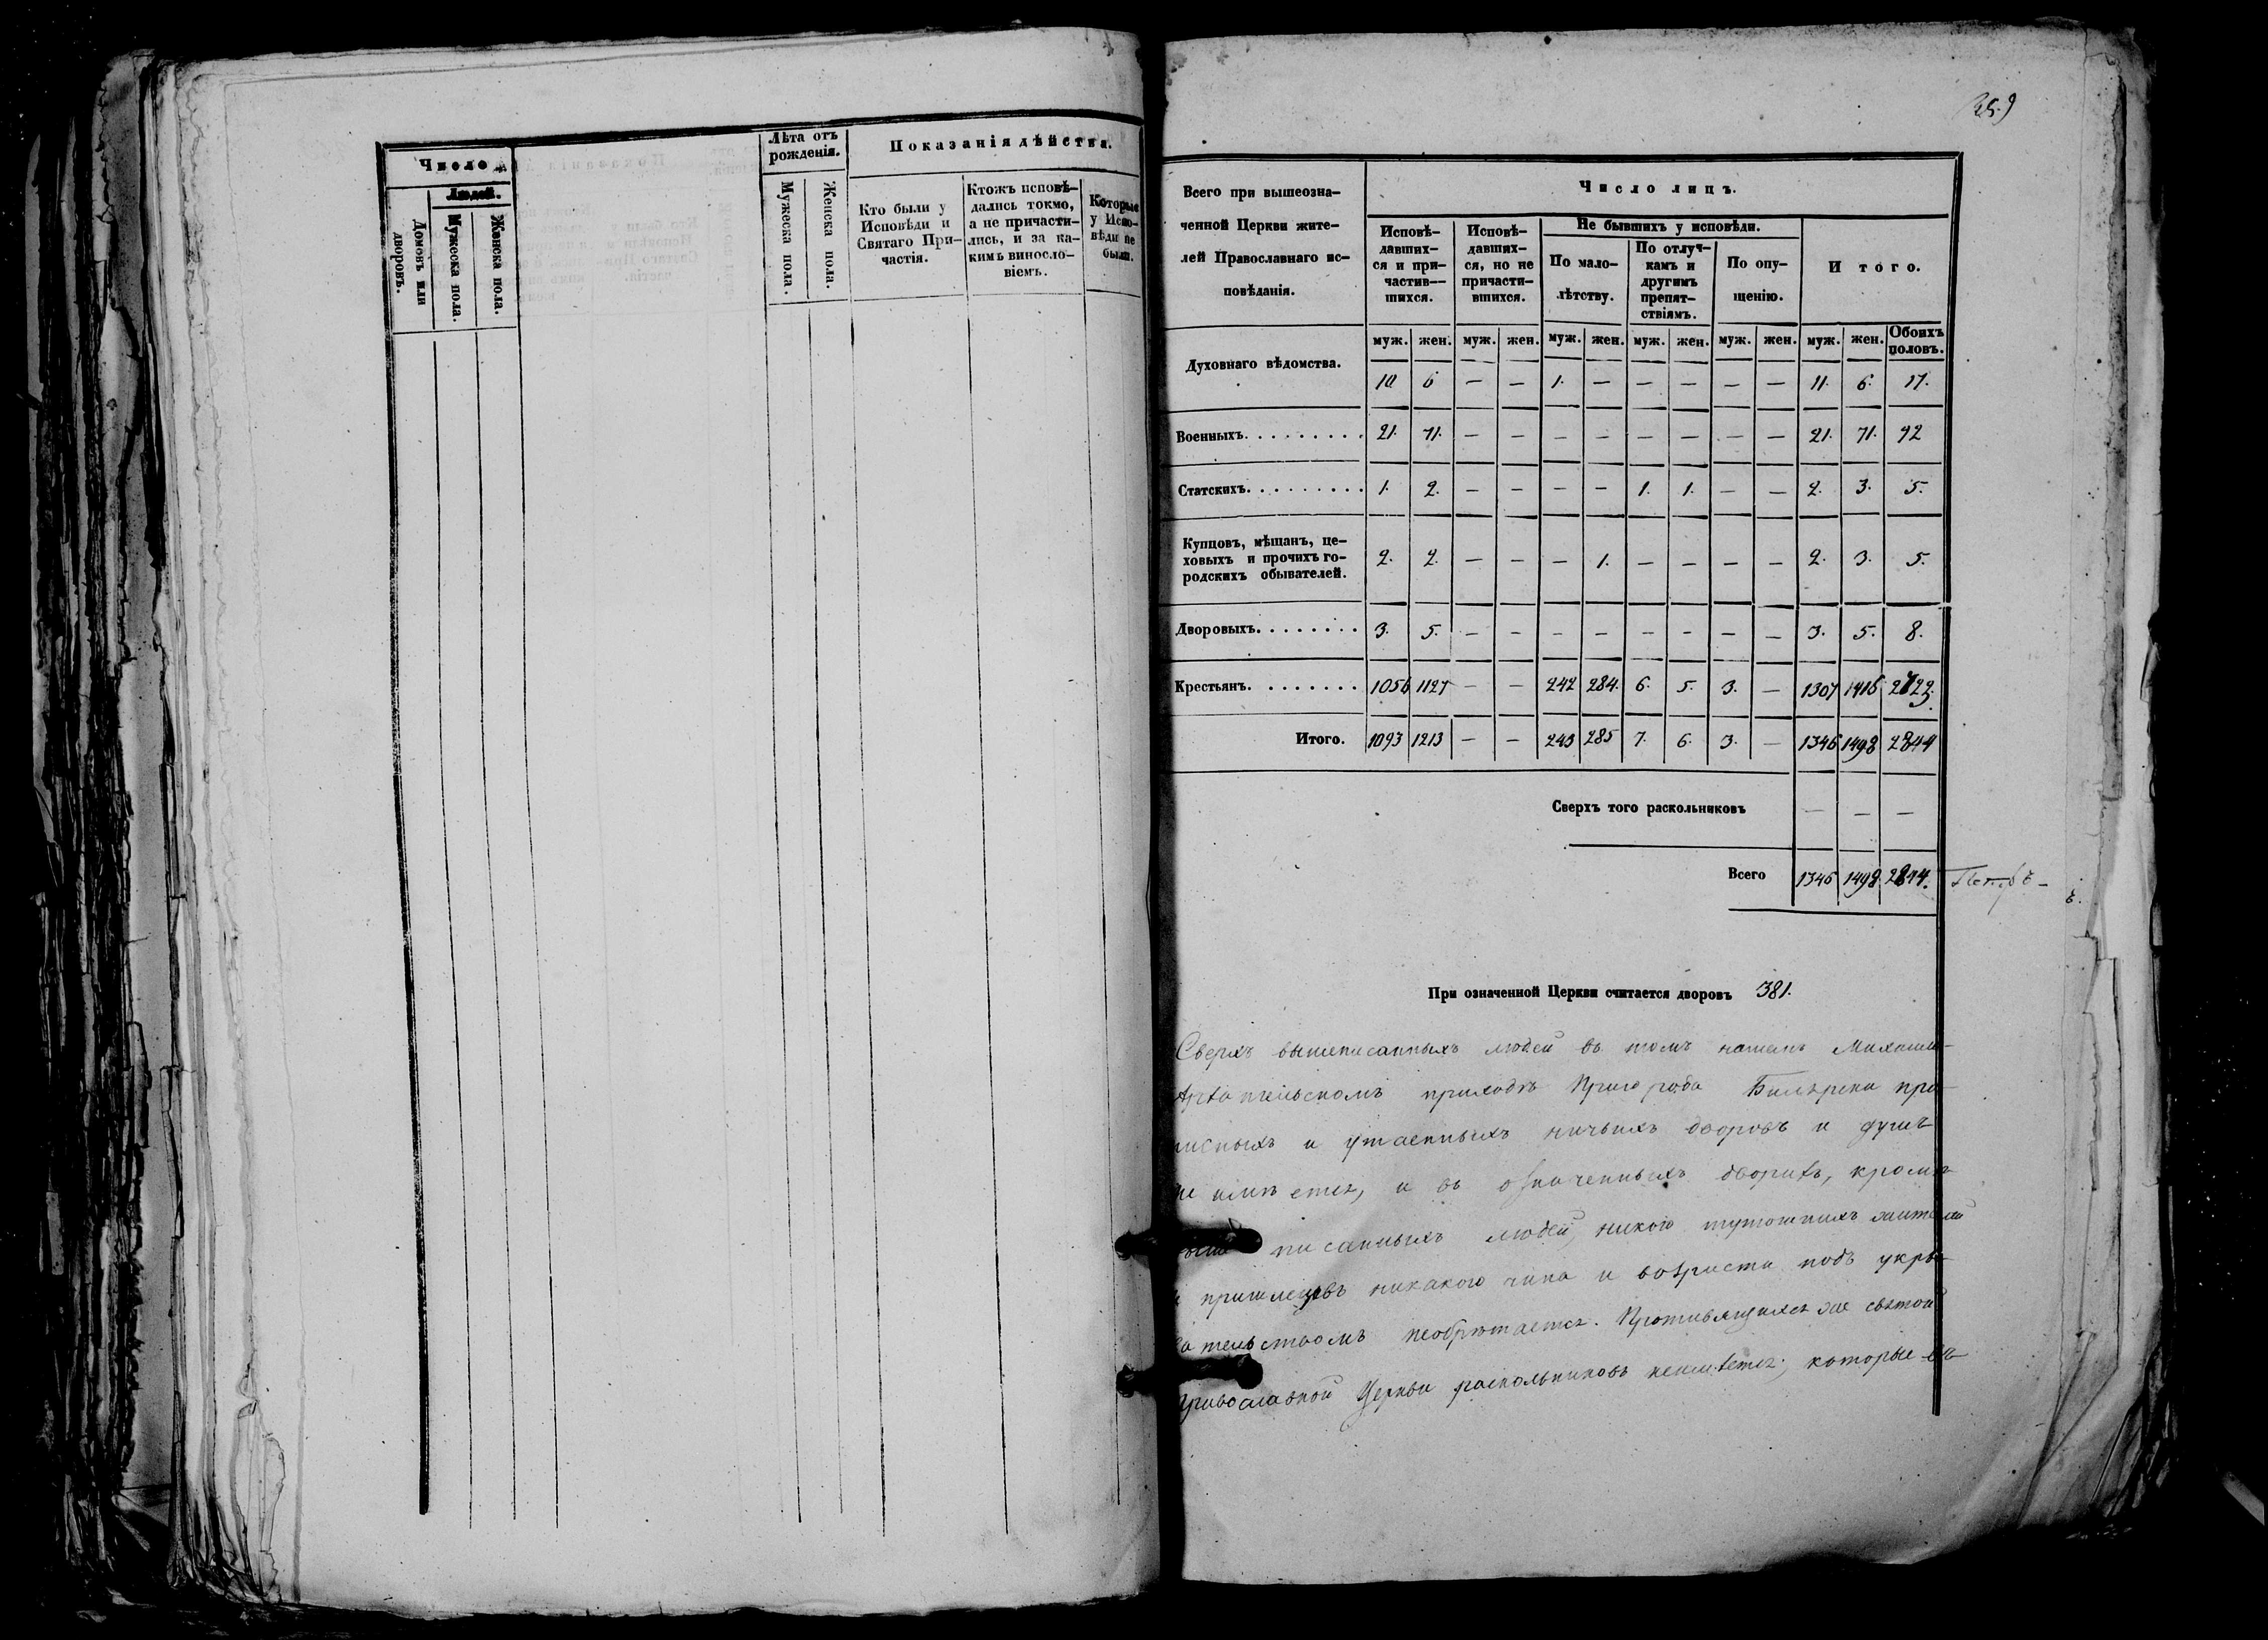 Число
Людей.
Домовъ или дворовъ.
Мужеска пола.
Женска пола.
Лѣта отъ рожденія.
Мужеска пола.
Женска пола.
Показанія дѣйства.
Кто были у
Исповѣди и
Святаго При-
частія.
Ктожъ исповѣ-
дались токмо,
а не причасти-
лись, и за ка-
кимъ винослo-
віемъ.
Которые
у Испо-
вѣди не
были.
Всего при вышеозна-
ченной Церкви жите-
лей Православнаго ис-
повѣданія.
Число лицъ.
Исповѣ-
давших-
ся и при-
частив-
шихся.
Исповѣ-
давших-
ся, но не
причасти-
вшихся.
Не бывшихъ у исповѣди.
По мало-
лѣтству.
По отлуч-
камъ и
другимъ
препят-
ствіямъ.
По опу-
щенію.
Итого.
муж. жен. муж. жен. муж. жен. муж. жен. муж. жен. муж. жен. Обоихъ половъ.
Духовнаго вѣдомства. 10 6 — — 1. — — — — — 11. 6. 17.
Военныхъ. 21. 71. — — — — — — — — 21. 71. 92
Статскихъ. 1. 2. — — — — 1. 1. — — 2. 3. 5.
Купцовъ, мѣщанъ, це-
ховыхъ и прочихъ го-
родскихъ обывателей. 2. 2. — — — 1. — — — — 2. 3. 5.
Дворовыхъ. 3. 5. — — — — — — — — 3. 5. 8.
Крестьянъ. 1056 1127 — — 242 284. 6. 5. 3. — 1307 1416 2723.
Итого. 1093 1213 — — 243 285 7. 6. 3. — 1346 1498 2844
Сверхъ того раскольниковъ — — —
Всего 1346 1498 2844.
При означенной Церкви считается дворовъ 381.
Сверхъ вышеписанныхъ людей въ томъ нашемъ Михаило-
Архангельскомъ приходѣ Пригорода Билярска про-
писныхъ и утаенныхъ ничьихъ дворовъ и душъ
не имѣется, и въ означенныхъ дворахъ, кромѣ
выше писанныхъ людей, никого тутошнихъ жителей
и пришлецовъ никакого чина и возраста подъ укры-
вательствомъ необрѣтается. Противящихся же святой
Православной Церкви раскольниковъ неимѣется; которые